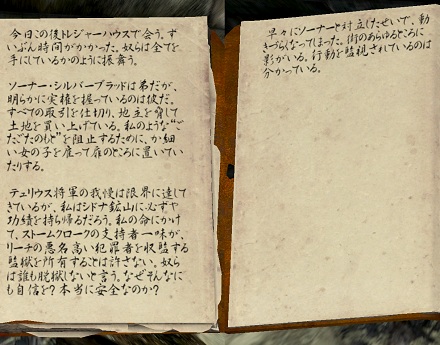 今日この後トレジャーハウスで会う。ず
いぶん時間がかかった。奴らは全てを
手にしているかのように振舞う。
ソーナー・シルバーブラッドは弟だが、
明らかに実権を握っているのは彼だ。
すべての取引を仕切り、地主を脅して
土地を買い上げている。私のような“ご
たごたのもと”を阻止するために、か細
い女の子を雇って扉のところに置いてい
たりする。
テュリウス将軍の我慢は限界に達して
きているが、私はシドナ鉱山に必ずや
功績を持ち帰るだろう。私の命にかけ
て、ストームクロークの支持者一味が、
リーチの悪名高い犯罪者を収監する
監獄を所有することは許さない。奴ら
は誰も脱獄しないと言う。なぜそんなに
も自信を？本当に安全なのか？
早々にソーナーと対立したせいで、動
きづらくなってしまった。街のあらゆるところに
影がいる。行動を監視されているのは
分かっている。